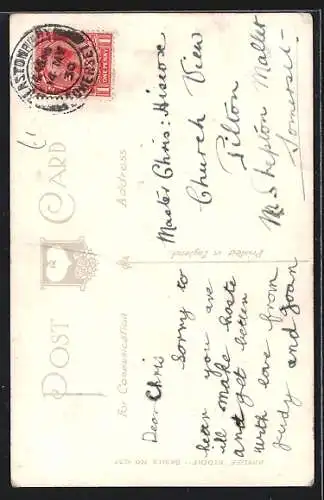 POST CARD
For Communication
Address
Dear Chris
sorry to
hear you are
ill make haste
and get better
with love from
Judy and Joan
Printed in England
ONE PENNY
Master Chris: Hiscox
Church View
Pilton
Nr Shepton Mallet
Somerset.